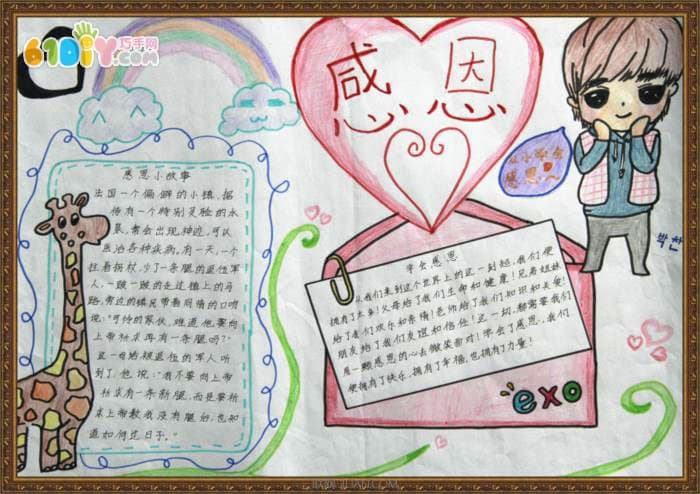 61DIY巧手网
.com
感恩
从小学会
感恩
朴灿
感恩小故事
法国一个偏僻的小镇,据
传有一个特别灵验的水
泉,常会出现神迹,可以
医治各种疾病。有一天,一个
拄着拐杖,少了一条腿的退伍军
人,一跛一跛的走过镇上的马
路,旁边的镇民带着同情的口吻
说:"可怜的家伙,难道他要向
上帝祈求再有一条腿吗?"
这一句话被退伍的军人听
到了,他说:"我不要向上帝
祈求有一条新腿,而是要祈
求上帝教我没有腿后,也知
道如何过日子。"
学会感恩
从我们来到这个世界上的这一刻起,我们便
拥有了太多!父母给了我们生命和健康!兄弟姐妹
给了我们欢乐和亲情!老师给了我们知识和友爱!
朋友给了我们友谊和信任!这一切,都需要我们
用一颗感恩的心去微笑面对!学会了感恩,我们
便拥有了快乐,拥有了幸福,也拥有了力量!
exo